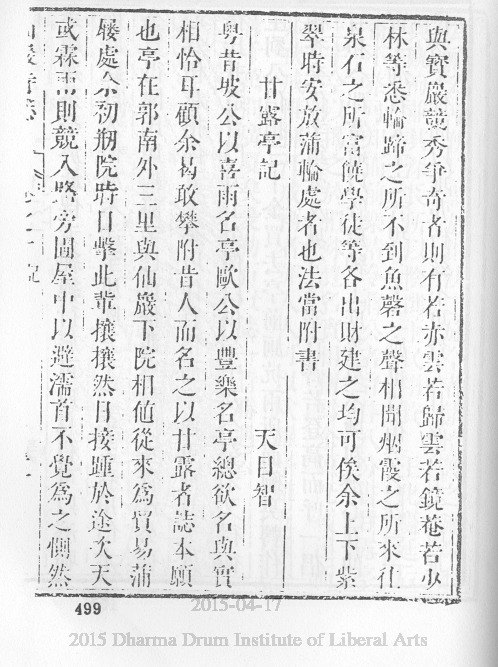 與寶巖競秀爭奇者則有若亦雲若歸雲若鏡菴若少
林等悉輪蹄之所不到魚磬之聲相聞烟霞之所來往
泉石之所富饒學徒等各出財建之均可俟余上下紫
翠時安放蒲輪處者也法當附書
甘露亭記
天目智
粵昔坡公以喜雨名亭歐公以豐樂名亭總欲名與實
相恰耳顧余曷敢攀附昔人而名之以甘露者誌本願
也亭在郭南外三里與仙巖下院相値從來爲貿易蒲
屨處余初剏院時目擊此輩攘攘然日接踵於途次天
或霖雨則競入路旁圊屋中以避濡首不覺爲之惻然
499
2015-04-17
2015 Dharma Drum Institute of Liberal Arts